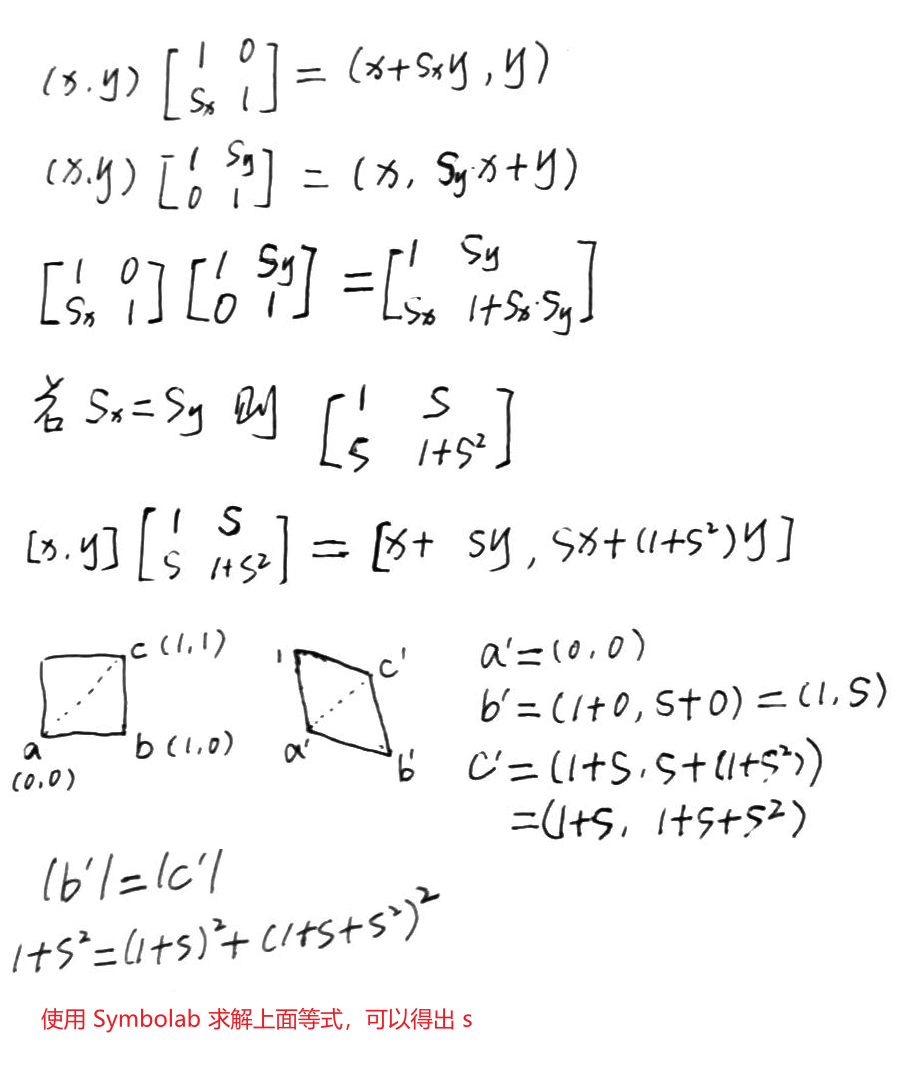 (x.y) [1 0 Sx 1] = (x+Sxy, y)
(x.y) [1 Sy 0 1] = (x, Sy·x+y)
[1 0 Sx 1] [1 Sy 0 1] = [1 Sy Sx 1+Sx·Sy]
若 Sx=Sy 则 [1 S S 1+S²]
[x.y] [1 S S 1+S²] = [x+ sy, sx+(1+s²)y]
c (1,1)
a
(0,0)
b (1,0)
1
c'
a'
b'
a'=(0,0)
b'=(1+0, S+0)=(1,S)
c'=(1+S, S+(1+S²))
=(1+S, 1+S+S²)
|b'|=|c'|
1+S²=(1+S)²+(1+S+S²)²
使用 Symbolab 求解上面等式，可以得出 s